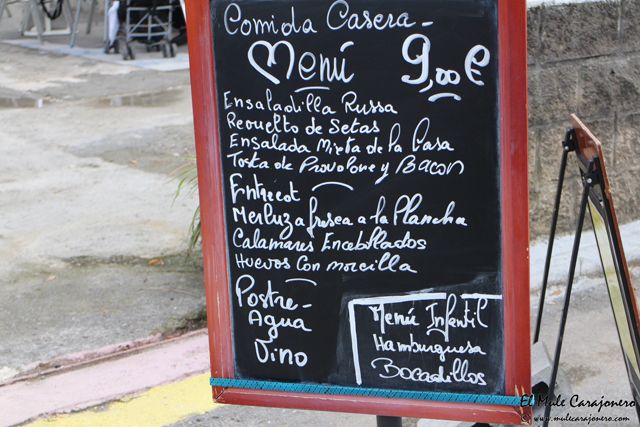 Comida Casera -
Menú 9,00 €
Ensaladilla Russa
Revuelto de Setas
Ensalada Mixta de la Casa
Tosta de Provolone y Bacon
Entrecot
Merluza fresca a la Plancha
Calamares Encebollados
Huevos Con morcilla
Postre -
Agua
Vino
Menú Infantil
Hamburguesa
Bocadillos
El Mule Carajonero
©www.mulecarajonero.com